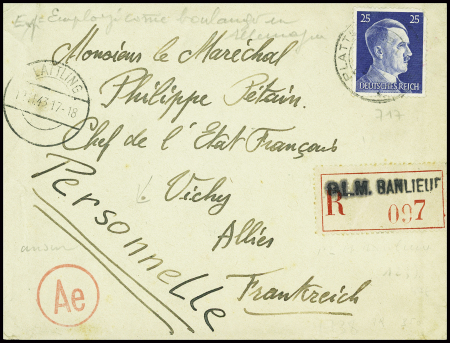 Employé comme boulanger en
25 25
DEUTSCHES REICH
PLATTLING
43.17-18
Monsieur le Maréchal
Philippe Pétain.
Chef de l'Etat Français
Vichy
Allier
Frankreich
Personnelle
717
P.L.M. BANLIEUE
R 097
Ae